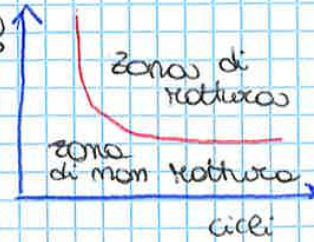 zona di
rottura
zona
di non rottura
cicli